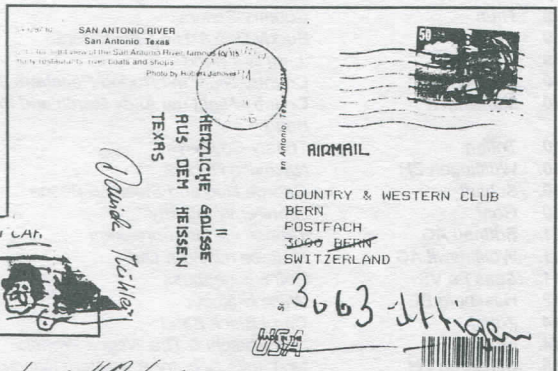 SAN ANTONIO RIVER
San Antonio Texas
view of the San Antonio River, famous for its
restaurants, river boats and shops
Photo by
50
San Antonio, Texas
HERZLICHE GRÜSSE
AUS DEM HEISSEN
TEXAS
AIRMAIL
COUNTRY & WESTERN CLUB
BERN
POSTFACH
3000 BERN
SWITZERLAND
3063 Ittigen
MADE IN THE
USA